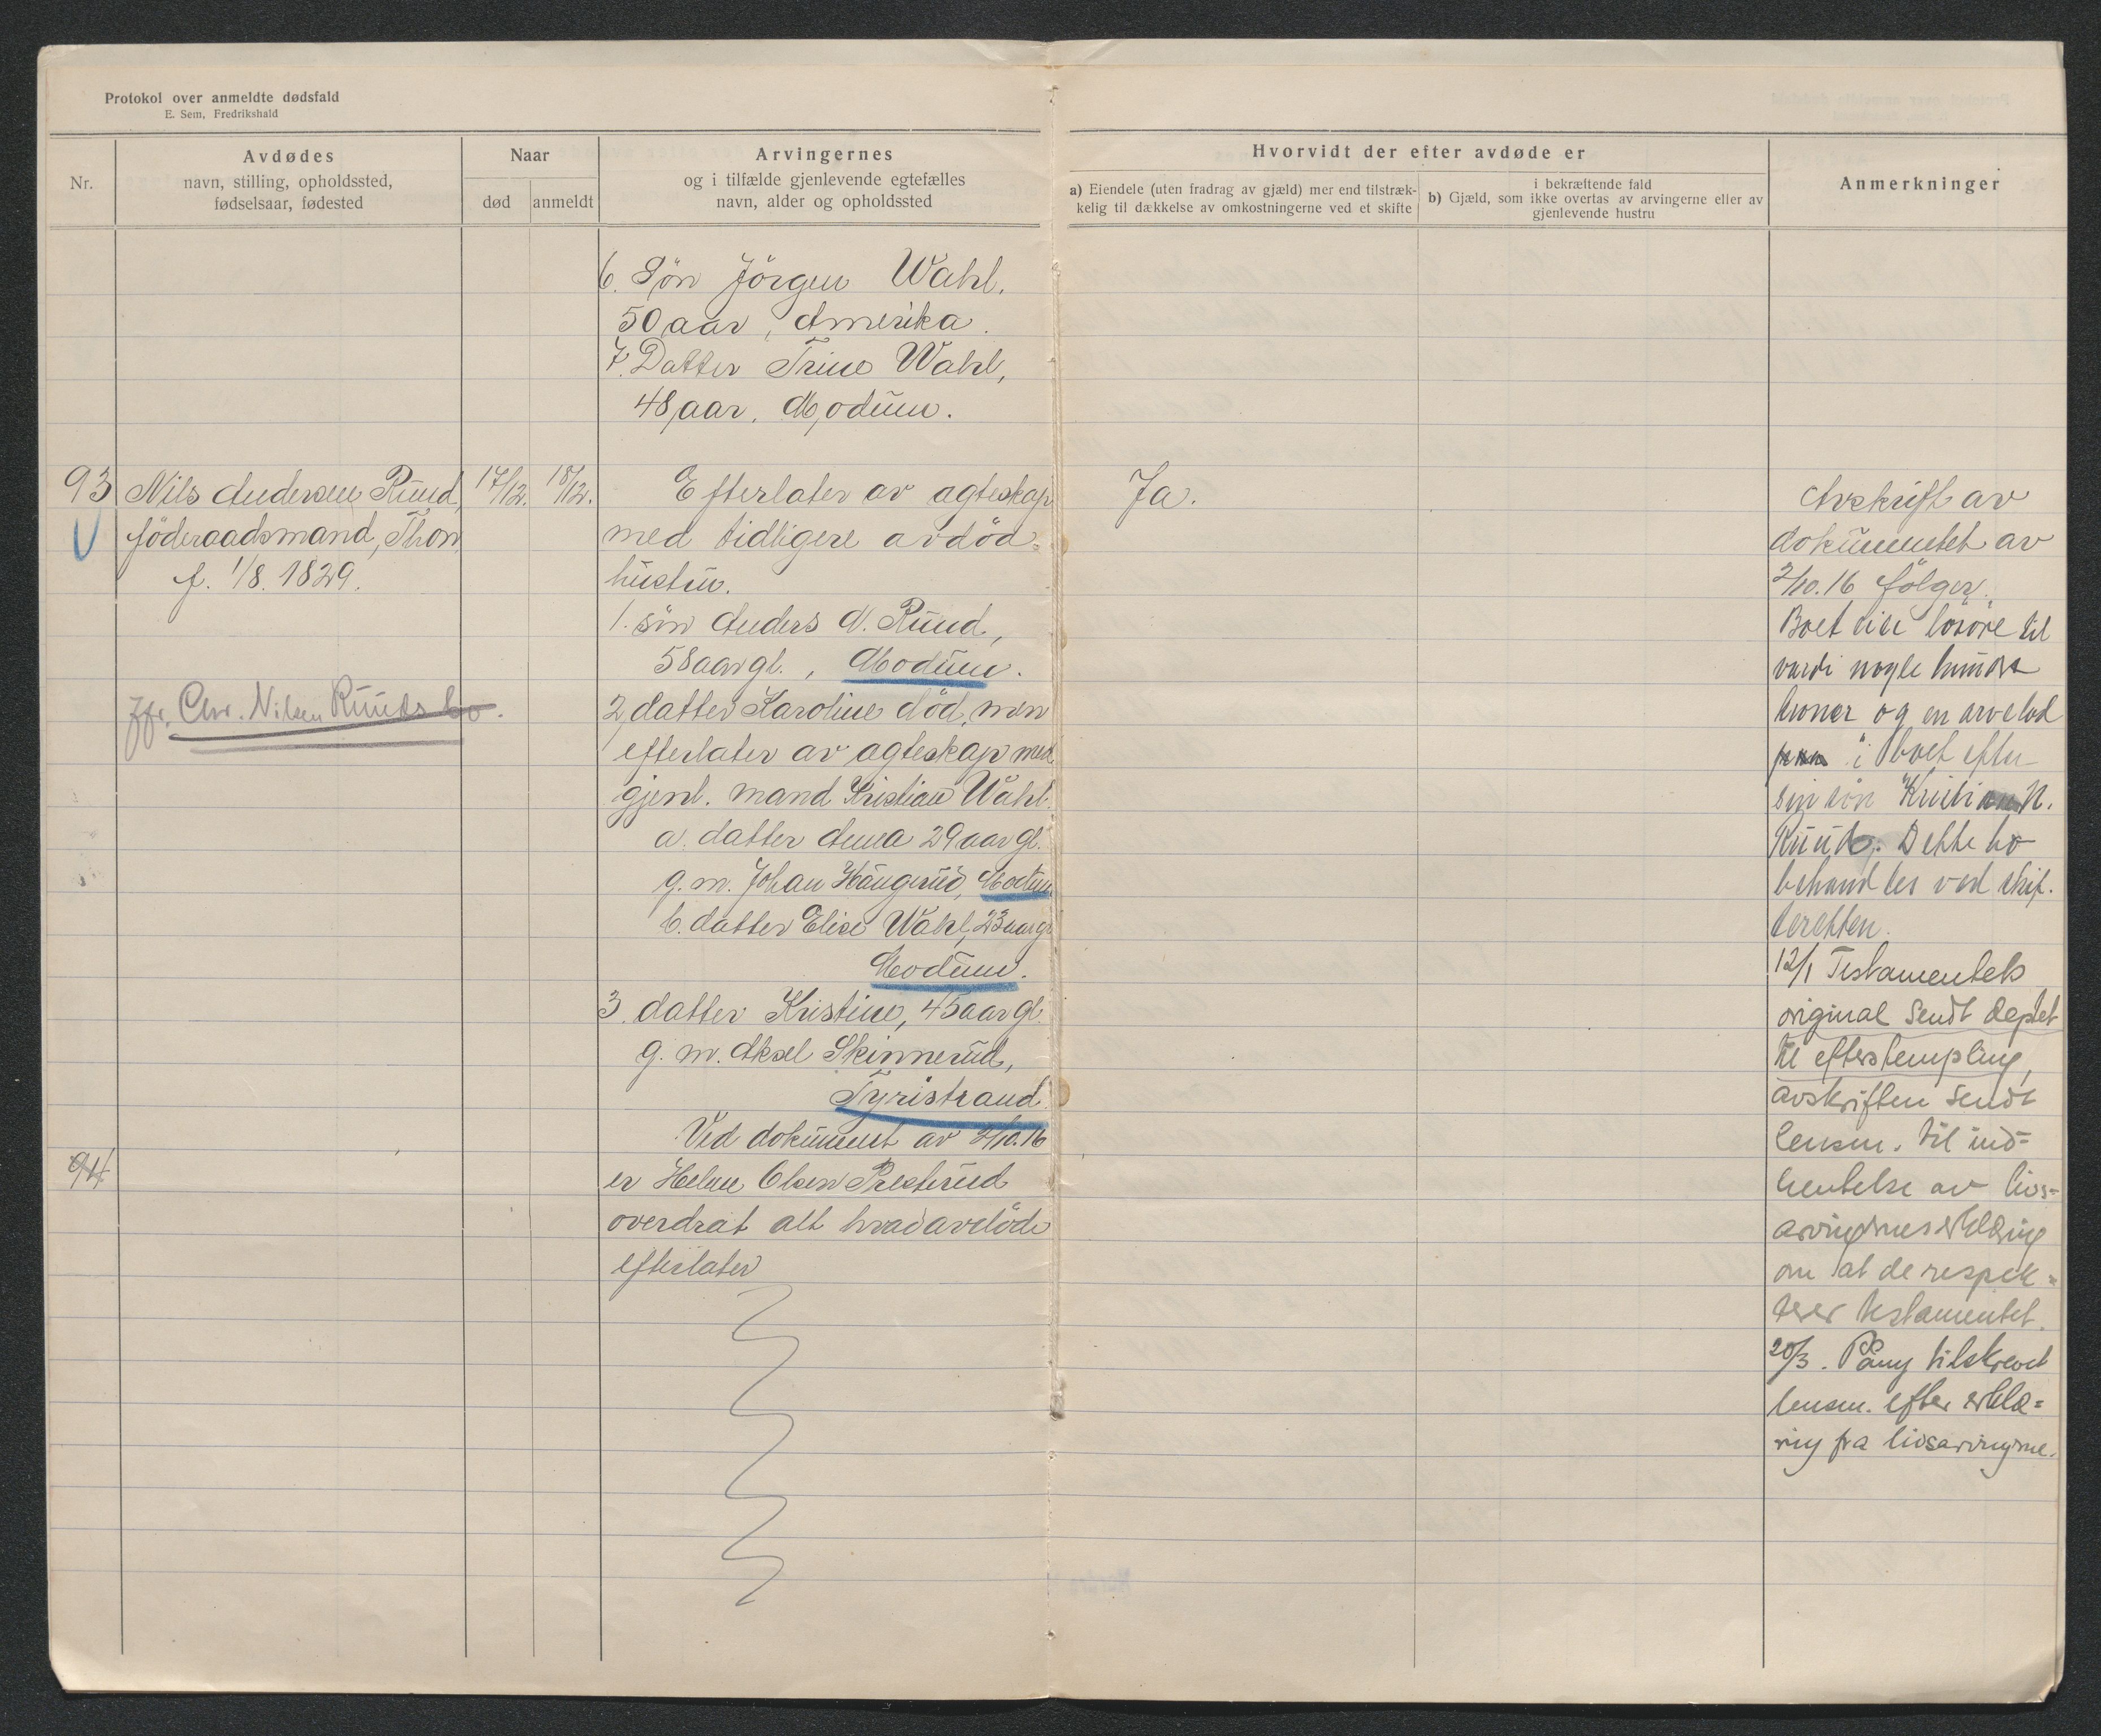 Protokol over anmeldte dødsfald
E. Sem, Fredrikshald
Nr.
Avdødes
navn, stilling, opholdssted,
fødselsaar, fødested
Naar
død
anmeldt
Arvingernes
og i tilfælde gjenlevende egtefælles
navn, alder og opholdssted
Hvorvidt der efter avdøde er
a) Eiendele (uten fradrag av gjæld) mer end tilstræk-
kelig til dækkelse av omkostningerne ved et skifte
i bekræftende fald
b) Gjæld, som ikke overtas av arvingerne eller av
gjenlevende hustru
Anmerkninger
6. Søn Jörgen Wahl,
50 aar, Amerika.
7. Datter Trine Wahl,
48 aar, Modum.
93
Nils Andersen Ruud,
föderaadsmand, Thon
f. 1/8. 1829.
jfr. Chr. Nilsen Ruuds bo.
17/12.
18/12.
Efterlater av ægteskap
med tidligere avdöd
hustru.
1. sön Anders N. Ruud,
58 aar gl., Modum.
2, datter Karoline död, men
efterlater av ægteskap med
gjenl. mand Kristian Wahl.
a. datter Anna 29 aar gl.
g. m. Johan Haugerud, Modum
b. datter Elise Wahl, 23 aar gl
Modum.
3. datter Kristine, 45 aar gl.
g. m. Aksel Skinnerud,
Tyristrand.
Ved dokument av 2/10.16
er Helene Olsen Presterud
overdrat alt hvad avdöde
efterlater
94
Ja.
Avskrift av
dokumentet av
2/10.16 fölger.
Boet eier lösöre til
værdi nogle hundre
kroner og en arvelod
i boet efter
sin sön Kristian N.
Ruud. Dette bo
behandles ved skif-
teretten.
12/1 Testamentets
original sendt deptet
til efterstempling,
avskriften sendt
lensm. til ind-
hentelse av livs-
arvingernes erklæring
om at de respek-
terer testamentet.
20/3. Paany tilskrevet
lensm. efter erklæ-
ring fra livsarvingerne.